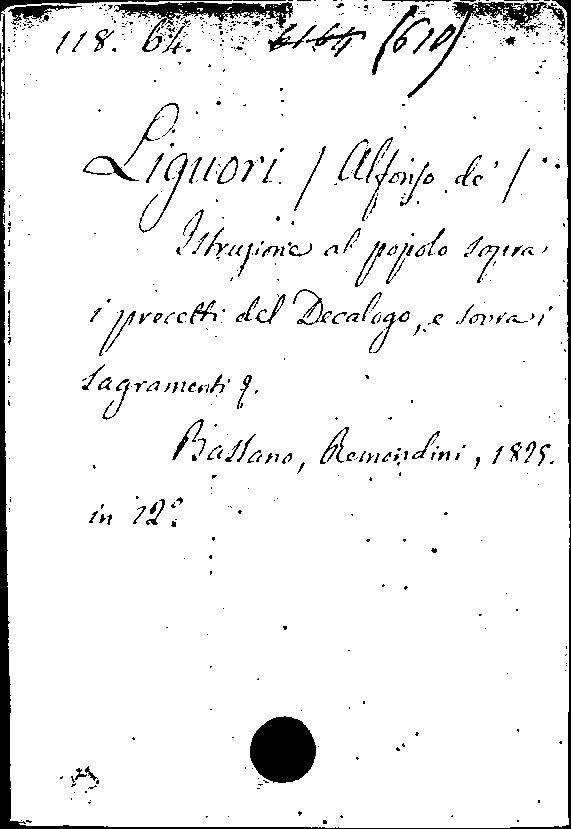 118. 64. 6164 (610)
Liguori / Alfonso de' /
Istruzione al popolo sopra
i precetti del Decalogo, e sovra i
sagramenti &.
Bassano, Remondini, 1825.
in 12°